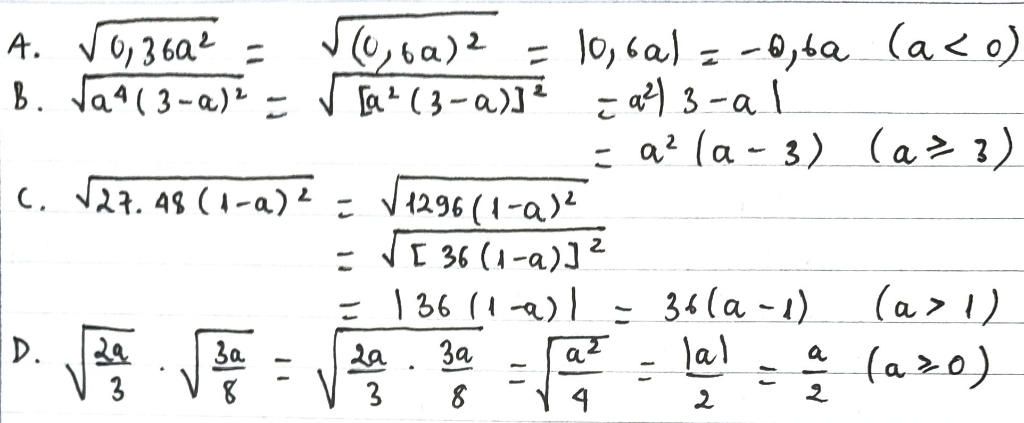 A. √0,36a² = √(0,6a)² = |0,6a| = -0,6a (a < 0)
B. √a⁴(3-a)² = √[a²(3-a)]² = a²|3-a|
= a²(a-3) (a ≥ 3)
C. √27.48(1-a)² = √1296(1-a)²
= √[36(1-a)]²
= |36(1-a)| = 36(a-1) (a > 1)
D. √2a/3 . √3a/8 = √2a/3 . 3a/8 = √a²/4 = |a|/2 = a/2 (a ≥ 0)